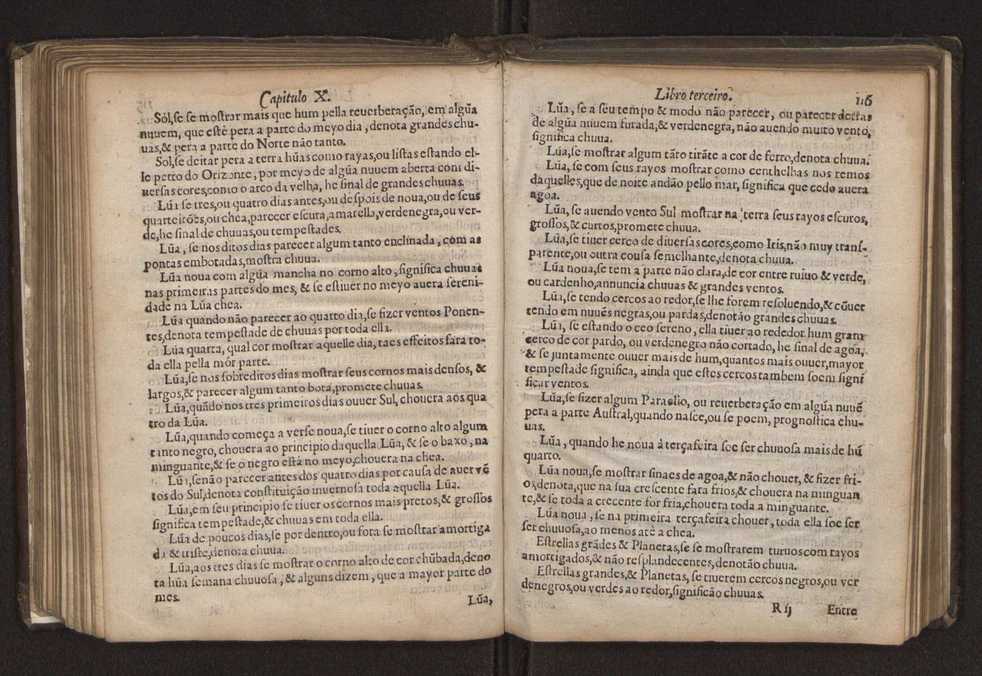 Capitulo X.
Sól,se se mostrar mais que hum pella reuerberação, em algũa
nuuem, que estè pera a parte do meyo dia, denota grandes chu-
uas,& pera a parte do Norte não tanto.
Sol,se deitar pera a terra hũas como rayas,ou listas estando el-
le perto do Orizonte, por meyo de algũa nuuem aberta com di-
uersas cores,como o arco da velha, he sinal de grandes chuuas.
Lũa se tres,ou quatro dias antes,ou despois de noua,ou de seus
quarteirões,ou chea,parecer escura,amarella,verdenegra,ou ver-
de,he sinal de chuuas,ou tempestades.
Lũa, se nos ditos dias parecer algum tanto enclinada, com as
pontas embotadas,mostra chuua.
Lũa noua com algũa mancha no corno alto, significa chuuas
nas primeiras partes do mes, & se estiuer no meyo auera sereni-
dade na Lũa chea.
Lũa quando não parecer ao quarto dia,se fizer ventos Ponen-
tes,denota tempestade de chuuas por toda ella.
Lũa quarta, qual cor mostrar aquelle dia, taes effeitos fara to-
da ella pella mór parte.
Lũa,se nos sobreditos dias mostrar seus cornos mais densos, &
largos,& parecer algum tanto bota,promete chuuas.
Lũa,quãdo nos tres primeiros dias ouuer Sul, chouera aos qua
tro da Lũa.
Lũa,quando começa a verse noua,se tiuer o corno alto algum
tanto negro, chouera ao principio daquella Lũa, & se o baxo, na
minguante,& se o negro está no meyo,chouera na chea.
Lũa,senão parecer antes dos quatro dias por causa de auer vẽ
tos do Sul,denota constituição inuernosa toda aquella Lũa.
Lũa,em seu principio se tiuer os cornos mais pretos,& grossos
significa tempestade,& chuuas em toda ella.
Lũa de poucos dias,se por dentro,ou fora se mostrar amortiga
da & triste,denota chuua.
Lũa,aos tres dias se mostrar o corno alto de cor chũbada,deno
ta hũa semana chuuosa, & alguns dizem, que a mayor parte do
mes.
Lũa,
Libro terceiro. 116
Lũa, se a seu tempo & modo não parecer, ou parecer detras
de algũa nuuem furada,& verdenegra, não auendo muito vento,
significa chuua.
Lũa,se mostrar algum tãto tirãte a cor de ferro,denota chuua.
Lũa, se com seus rayos mostrar como centhelhas nos remos
daquelles,que de noite andão pello mar, significa que cedo auera
agoa.
Lũa, se auendo vento Sul mostrar na terra seus rayos escuros,
grossos,& curtos,promete chuua.
Lũa,se tiuer cerco de diuersas cores,como Iris,não muy trans-
parente,ou outra cousa semelhante,denota chuua.
Lũa noua,se tem a parte não clara,de cor entre ruiuo & verde,
ou cardenho,annuncia chuuas & grandes ventos.
Lũa,se tendo cercos ao redor,se lhe forem resoluendo,& cõuer
tendo em nuuẽs negras,ou pardas,denotão grandes chuuas.
Lũa, se estando o ceo sereno, ella tiuer ao rededor hum gram
cerco de cor pardo, ou verdenegro não cortado, he sinal de agoa,
& se juntamente ouuer mais de hum,quantos mais ouuer,mayor
tempestade significa, ainda que estes cercos tambem soem signi
ficar ventos.
Lũa,se fizer algum Paraelio, ou reuerberação em algũa nuuẽ
pera a parte Austral,quando nasce,ou se poem, prognostica chu-
uas.
Lũa, quando he noua à terçafeira soe ser chuuosa mais de hũ
quarto.
Lũa noua,se mostrar sinaes de agoa,& não chouer, & fizer fri-
o,denota,que na sua crescente fara frios,& chouera na minguan
te,& se toda a crecente for fria,chouera toda a minguante.
Lũa noua, se na primeira terçafeira chouer, toda ella soe ser
ser chuuosa,ao menos atè a chea.
Estrellas grãdes & Planetas,se se mostrarem turuos com rayos
amortigados,& não resplandecentes,denotão chuua.
Estrellas grandes,& Planetas, se tiuerem cercos negros,ou ver
denegros,ou verdes ao redor,significão chuuas.
R ij Entre